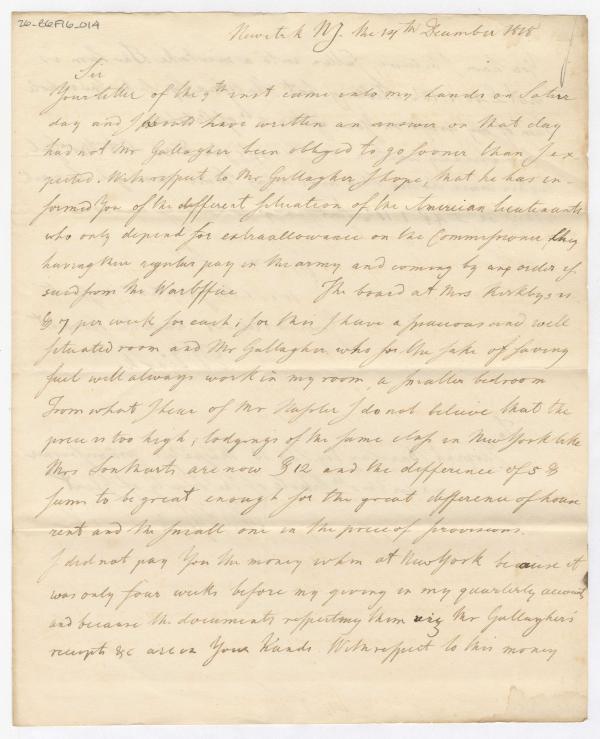 26-B6F16-014
Newark NJ. the 14th December 1818
Sir
Your letter of the 9th inst came into my hands on Satur
day and I should have written an answer on that day
had not Mr Gallagher been obliged to go sooner than I ex
pected. With respect to Mr Gallagher I hope, that he has in-
formed You of the different situation of the American lieutenants
who only depend for extraallowance on the Commissioner, they
having their regular pay in the army and coming by any order is
sued from the War office The board at Mrs Kirkbys is
$7 per week for each; for this I have a spacious and well
situated room and Mr Gallagher who for the sake of saving
fuel will always work in my room, a smaller bedroom
From what I hear of Mr Hasler I do not believe that the
price is too high; lodgings of the same class in New York like
Mrs are now $12 and the difference of 5 $
seems to be great enough for the great difference of house
rent and the small one in the price of provisions.
I did not pay You the money when at NewYork because it
was only four weeks before my giving in my quarterly account
and because the documents respecting them viz Mr Gallagher's
receipts &c are in Your Hands. With respect to this money